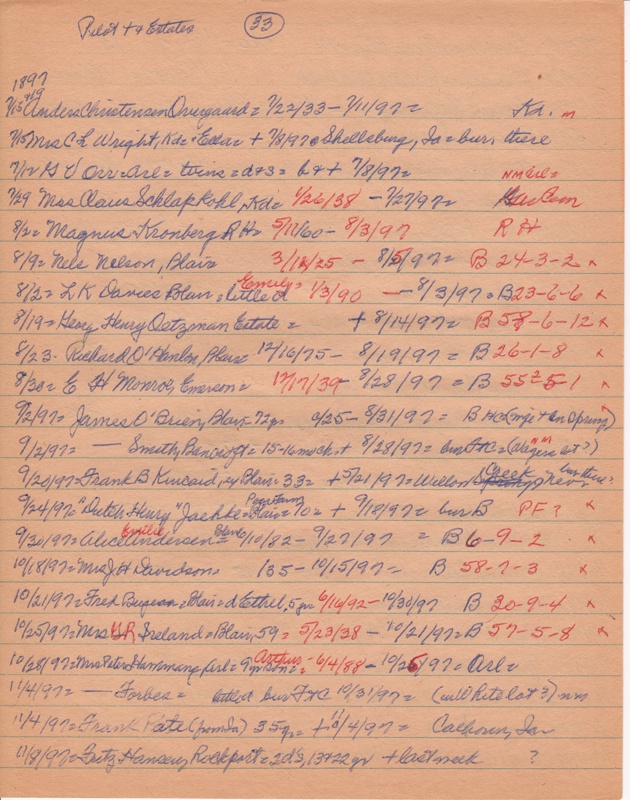 Pilot + & Estates 33
1897
7/15 + 7/9 Anders Christensen Overgaard = 7/22/33 - 7/11/97 = Kd. m
7/15 Mrs C L Wright, Kd = Edda = + 7/8/97 @ Shellsburg, Ia = bur. there
7/12 Orr = Arl = twins = d & s = b & + 7/8/97 = NM Arl =
7/29 Mrs Claus Schlapkohl, Kd = 1/26/38 - 7/27/97 =
8/2 = Magnus Kronberg R H = 5/11/60 - 8/3/97 R H
8/9 = Nels Nelson, Blair 3/12/25 - 8/5/97 = B 24-3-2 x
8/2 = L K Davies Blair = little d Emily = 1/3/90 - 8/3/97 = B 23-6-6 x
8/19 = Georg Henry Oetzman Estate = + 8/14/97 = B 58-6-12 x
8/23 - Richard O'Hanlon, Blair 12/16/75 - 8/19/97 = B 26-1-8 x
8/30 = E H Monroe, Emerson = 12/17/39 - 8/28/97 = B 55-5-1 x
9/2/97 = James O'Brien, Blair - 72 yrs /25 - 8/31/97 = B HC
9/2/97 = — Smith, Bancroft = 15-16 mo ch = + 8/28/97 = bur F+C =
9/20/97 = Frank B Kincaid, Blair = 33 = + 5/21/97 = Willow Creek bur there
9/24/97 = "Dutch Henry" Jaehke = Blair = 70 = + 9/18/97 = bur B PF ?
9/30/97 = Alice Emilie Andersen = 10/82 - 9/27/97 = B 6-9-2 x
10/18/97 = Mrs J H Davidson, 135 - 10/15/97 = B 58-7-3 x
10/21/97 = Fred = Blair = d Ethel, 5 yr 6/16/92 - 10/30/97 B 30-9-4 x
10/25/97 = Mrs HR Ireland = Blair, 59 = 5/23/38 - 10/21/97 = B 57-5-8 x
10/28/97 = Mrs Peter Hammang, Arl = 9 yr son = Arthur = 6/4/88 - 10/25/97 = Arl =
11/4/97 = — Forbes = bur F+C 10/31/97 = (in White lot ?) nm
11/4/97 = Frank Pate (from Ia) 35 yr = + 11/4/97 = Calhoun, Ia
11/8/97 = Fritz Hansen, Rockport = 2 d's, 13 + 22 yr + last week ?